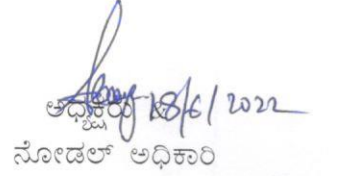 ಅಧ್ಯಕ್ಷರು 18/6/2022
ನೋಡಲ್ ಅಧಿಕಾರಿ